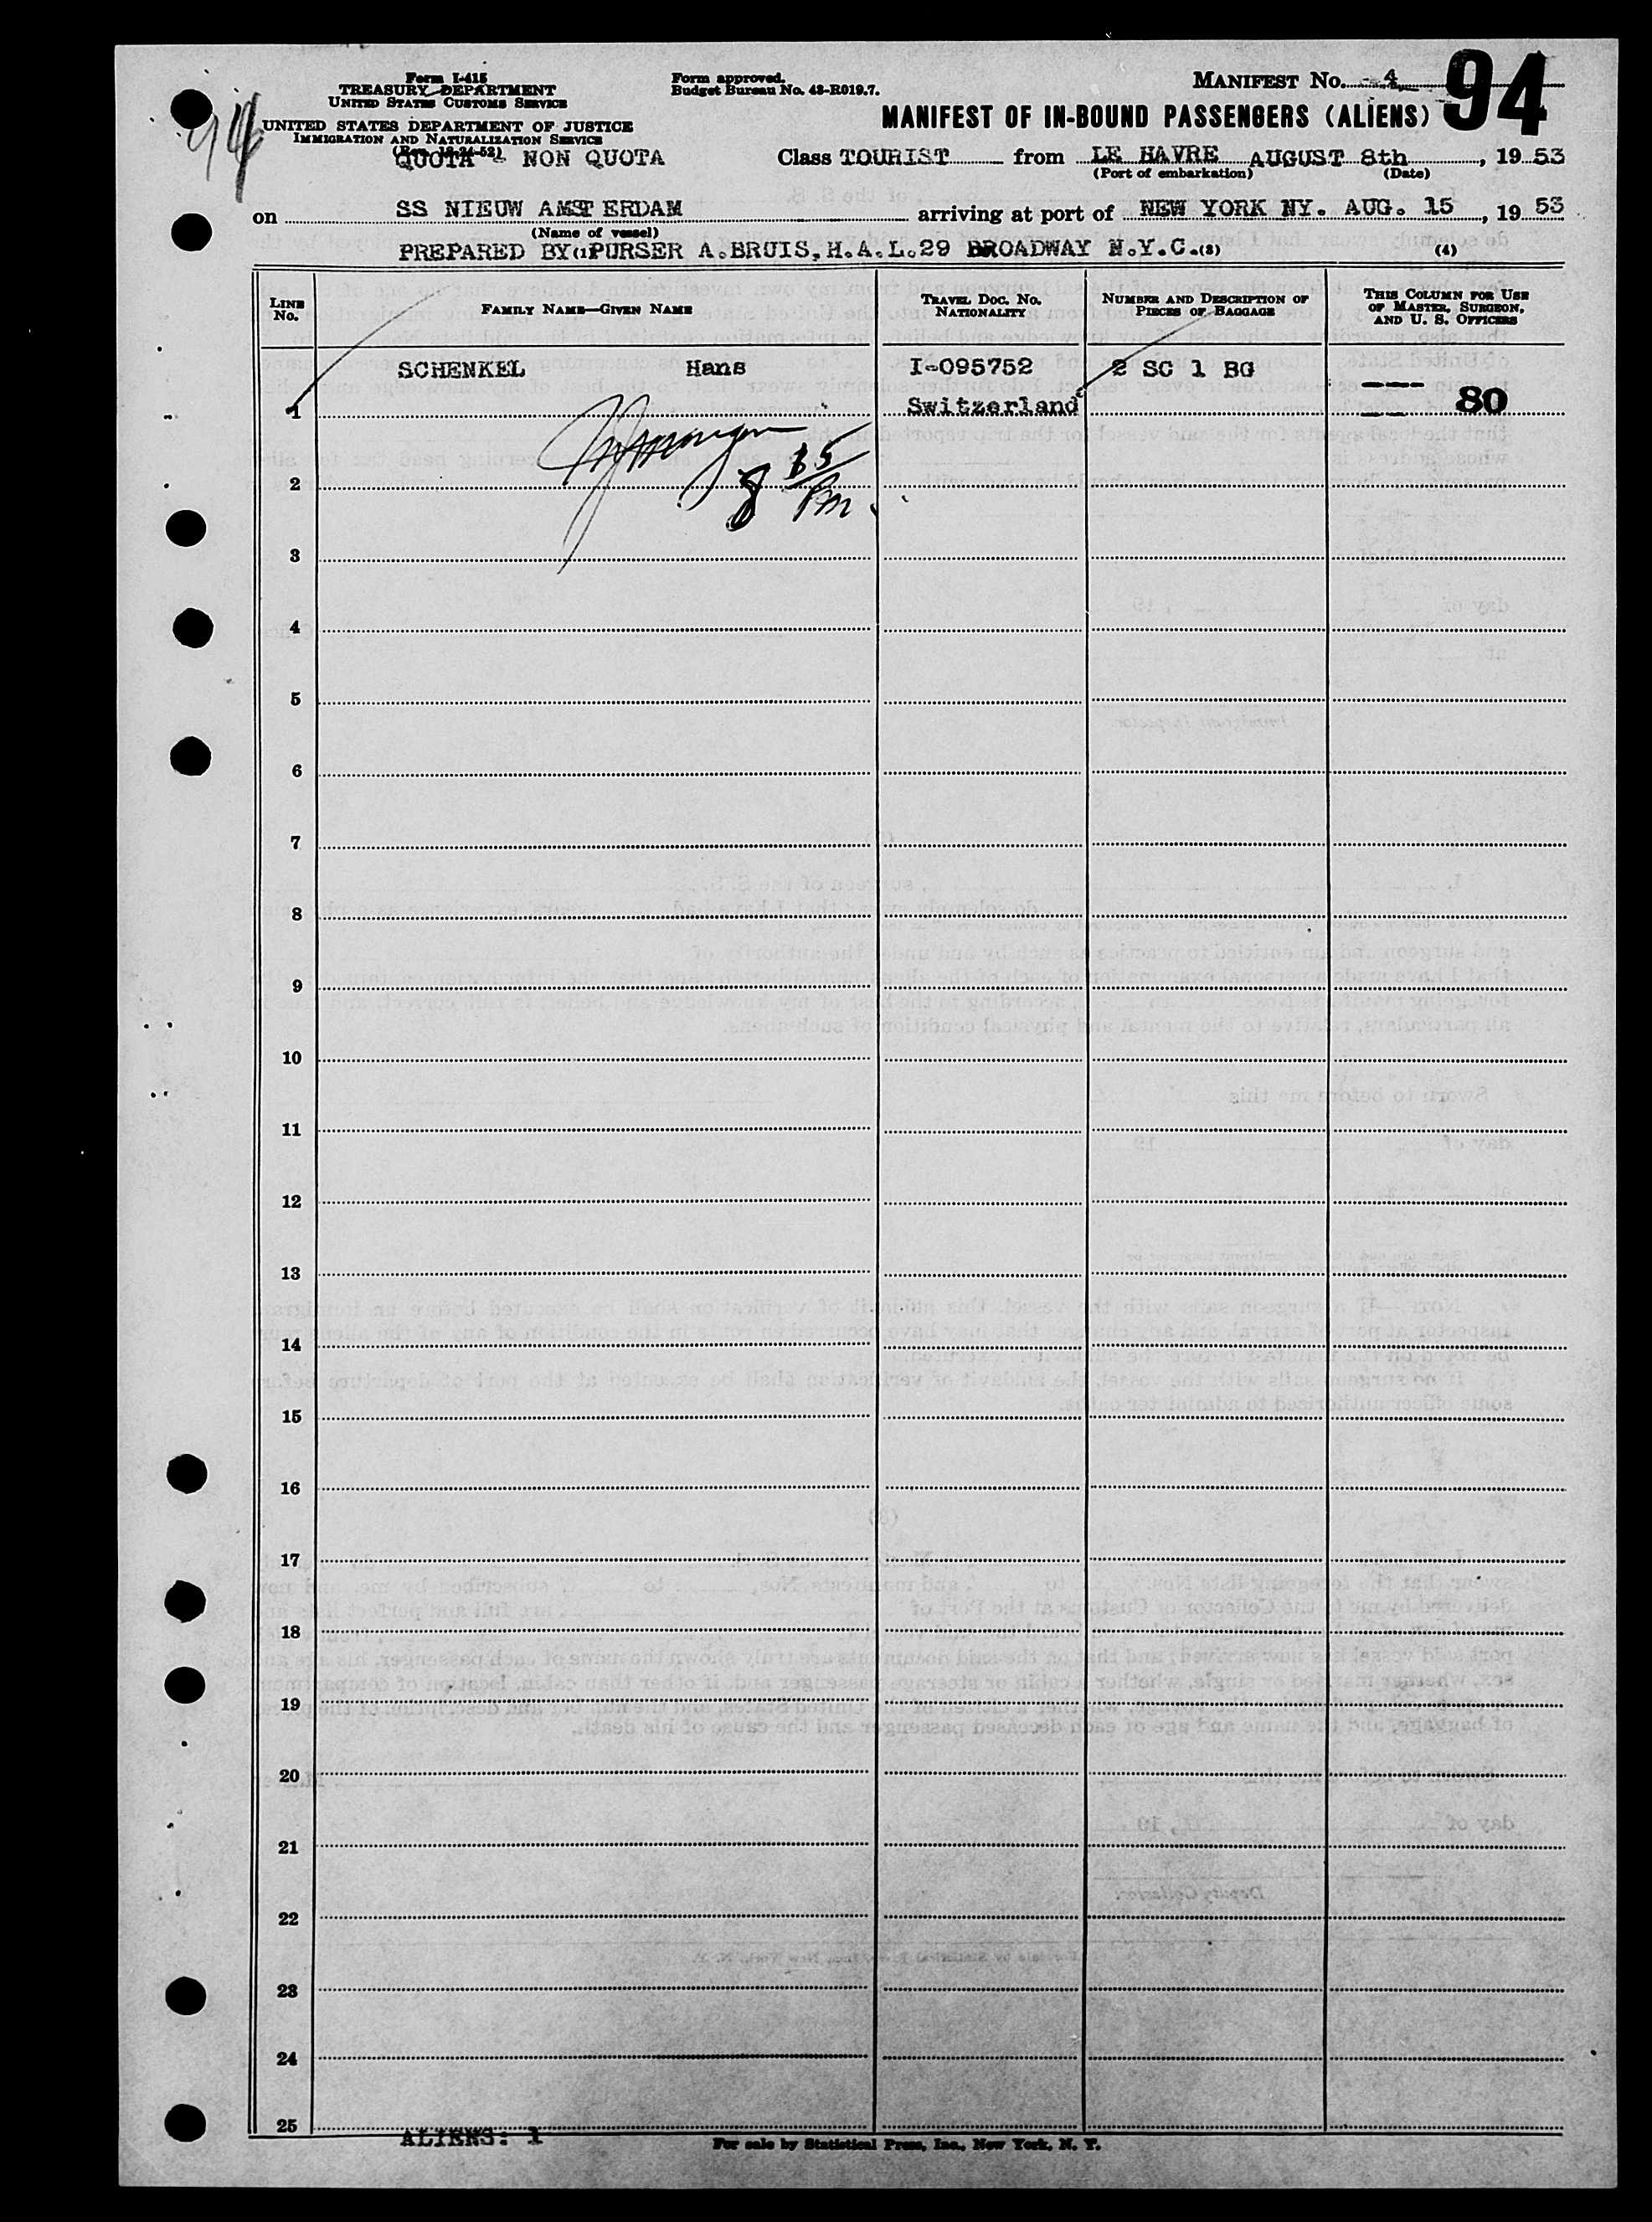 Form I-415
TREASURY DEPARTMENT
UNITED STATES CUSTOMS SERVICE
UNITED STATES DEPARTMENT OF JUSTICE
IMMIGRATION AND NATURALIZATION SERVICE
(Rev. 12-24-52)
Form approved.
Budget Bureau No. 43-R019.7.
MANIFEST NO. 4
94
MANIFEST OF IN-BOUND PASSENGERS (ALIENS)
94
QUOTA - NON QUOTA Class TOURIST from LE HAVRE AUGUST 8th, 1953
(Port of embarkation) (Date)
on SS NIEUW AMSTERDAM arriving at port of NEW YORK NY. AUG. 15, 1953
(Name of vessel)
PREPARED BY(1)PURSER A.BRUIS,H.A.L.29 BROADWAY N.Y.C.(3) (4)
LINE NO. FAMILY NAME—GIVEN NAME TRAVEL DOC. NO. NATIONALITY NUMBER AND DESCRIPTION OF PIECES OF BAGGAGE THIS COLUMN FOR USE OF MASTER, SURGEON, AND U. S. OFFICERS
SCHENKEL Hans I-095752 2 SC 1 BG
1 Switzerland 80
8 35 Pm
2
3
4
5
6
7
8
9
10
11
12
13
14
15
16
17
18
19
20
21
22
23
24
25
ALIENS: 1
For sale by Statistical Press, Inc., New York, N. Y.